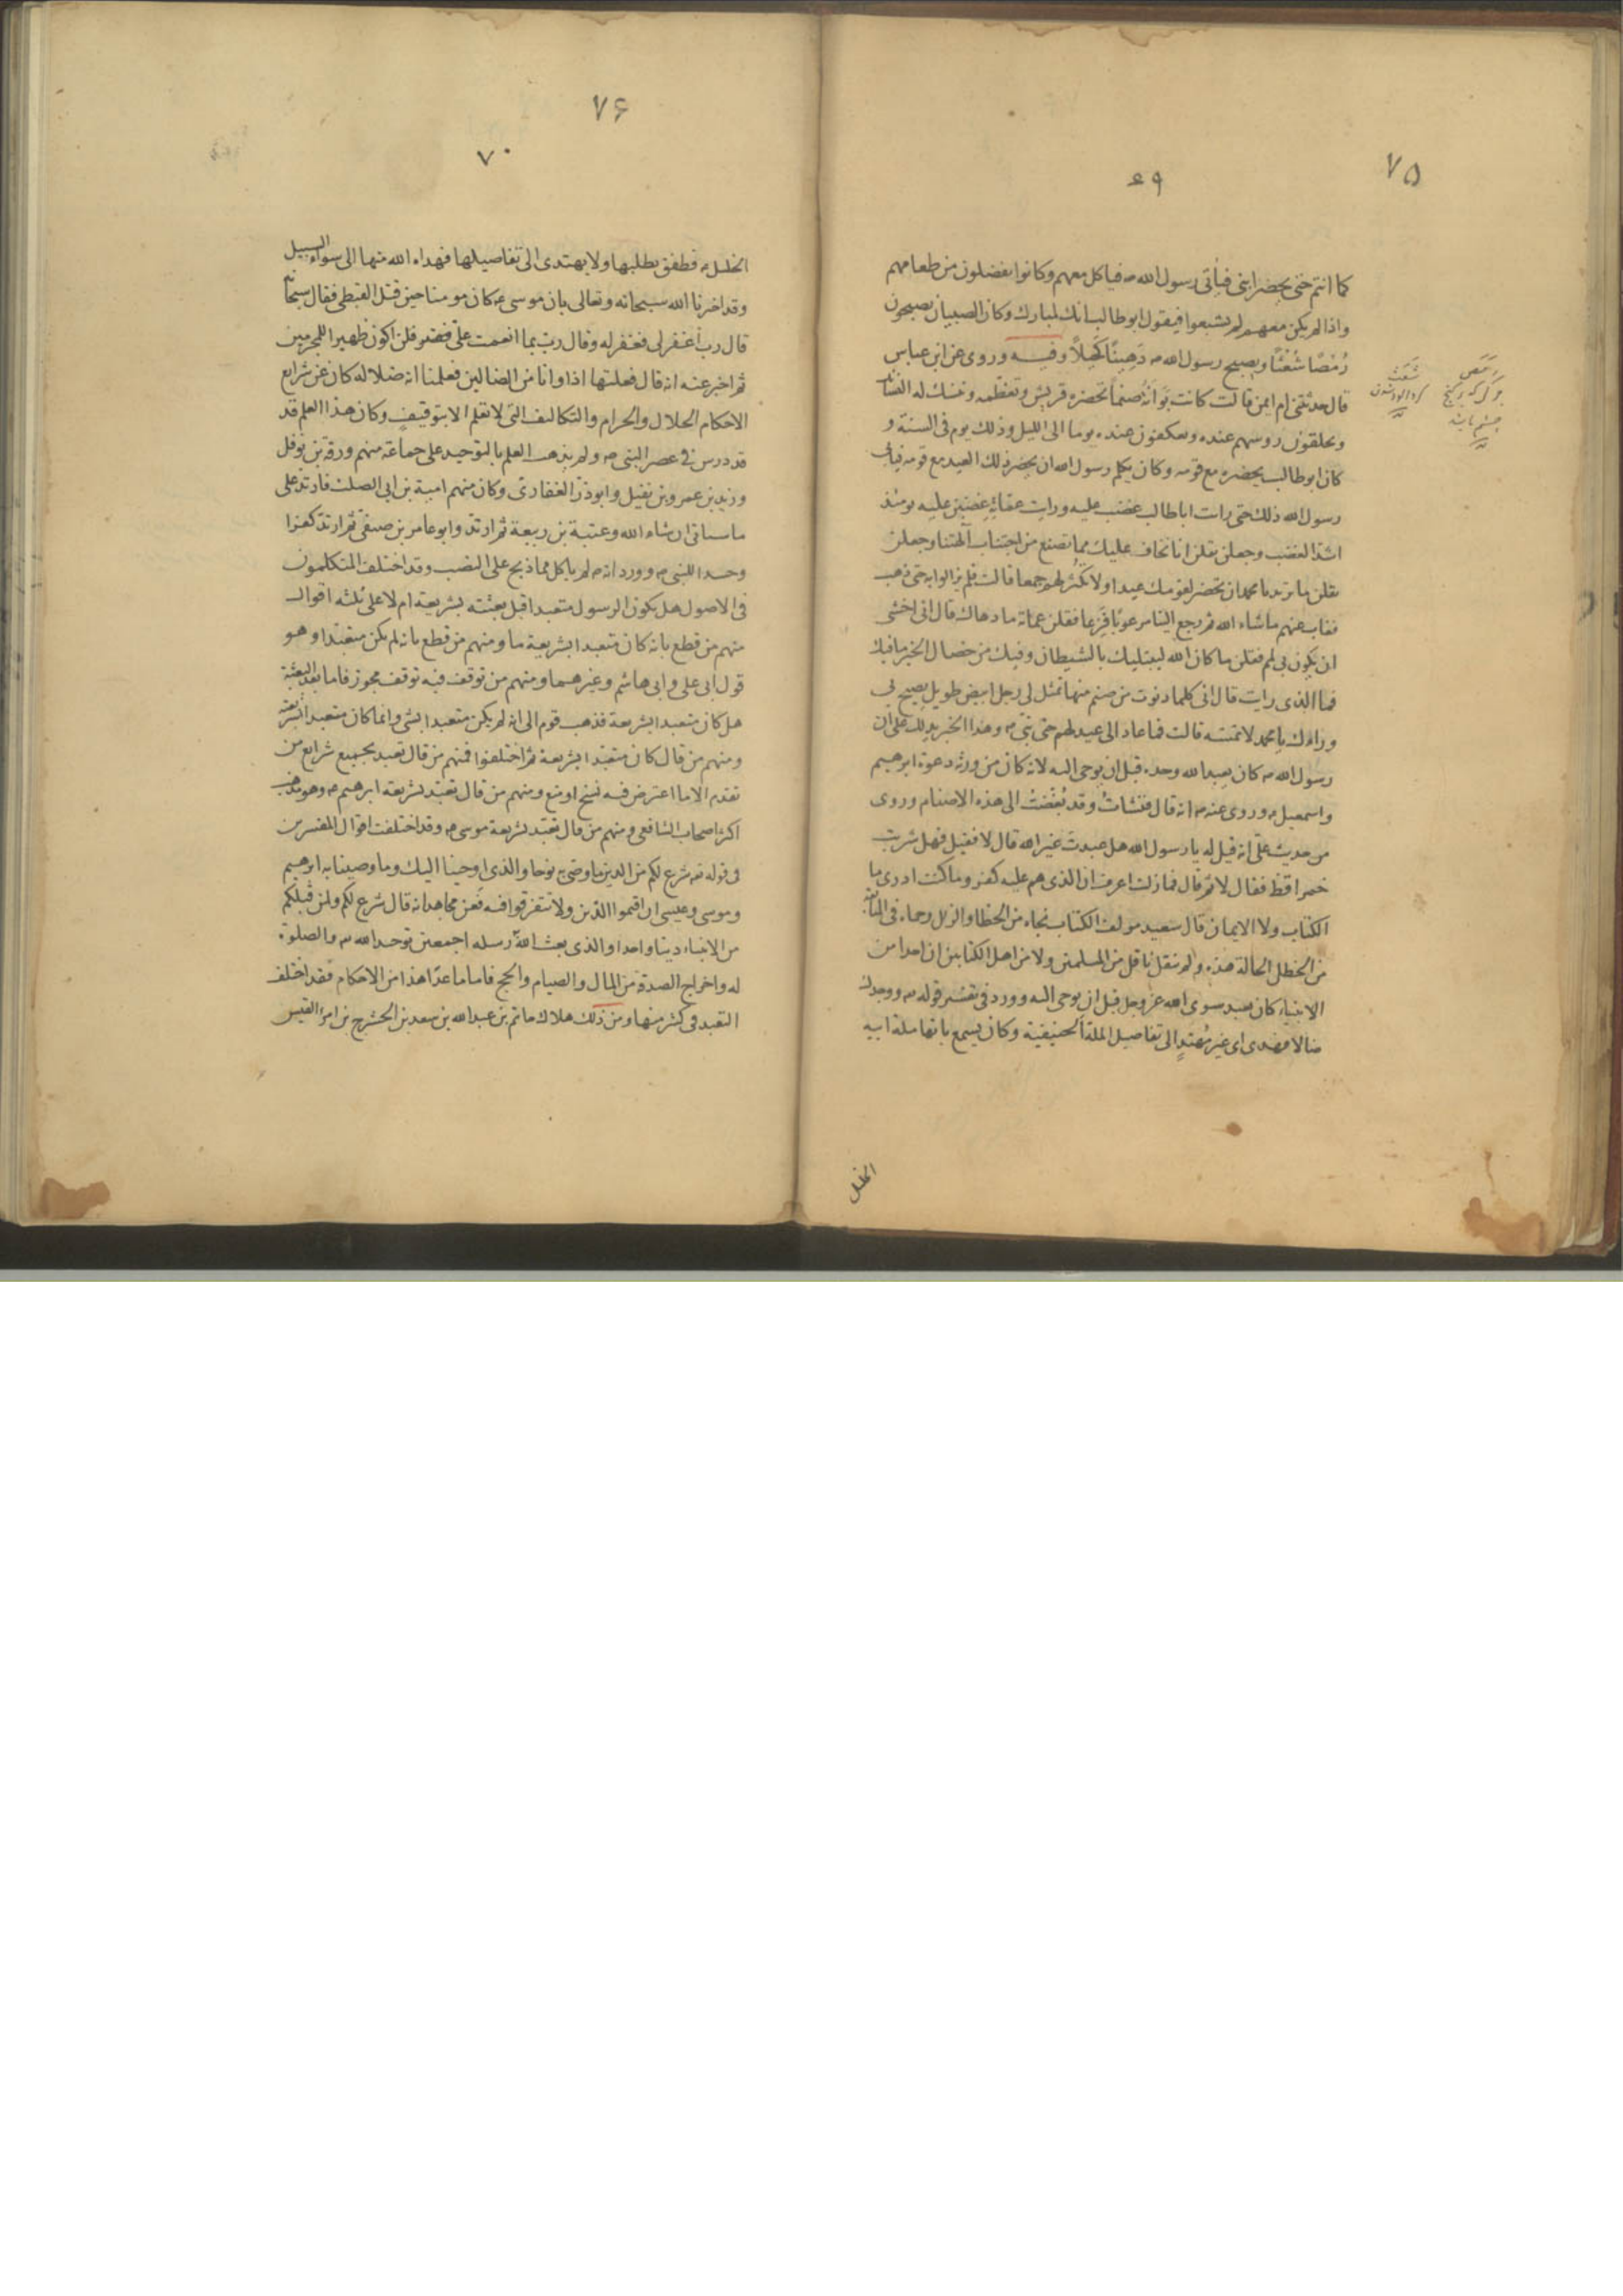 ٧۵
۶۹
كما انتم حتى يحضر ابنى فيأتى رسول الله ص فياكل معهم وكانوا يفضلون من طعامهم
واذا لم يكن معهم لم يشبعوا فيقول ابو طالب انك لمبارك وكان الصبيان يصبحون
رُمْصًا شُعْثًا ويصبح رسول الله ص دَهِينًا كَحِيلاً وفيه وروى عن ابن عباس
قال حدثتنى ام ايمن قالت كانت بَوَانَةُ صنماً تحضره قريش وتعظمه وتنسك له النسائك
ويحلقون روسهم عنده ويعكفون عنده يوما الى الليل وذلك يوم فى السنة و
كان ابو طالب يحضره مع قومه وكان يكلم رسول الله ان يحضر ذلك العيد مع قومه فيابى
رسول الله ذلك حتى رايت اباطالب غضب عليه ورايت عماته غضبن عليه يومئذ
اشد الغضب وجعلن يقلن انا نخاف عليك مما تصنع من اجتناب آلهتنا وجعلن
يقلن ما تريد يا محمد ان تحضر لقومك عيدا ولا تكثر لهم جمعا قالت فلم يزالوا به حتى ذهب
فغاب عنهم ماشاء الله ثم رجع الينا مرعوبًا فَزِعا فقلن عماته ما دهاك قال انى اخشى
ان يكون بى لمم فقلن ما كان الله ليبتليك بالشيطان وفيك من خصال الخير ما فيك
فما الذى رايت قال انى كلما دنوت من صنم منها تمثل لى رجل ابيض طويل يصيح بى
وراءك يا محمد لا تمسه قالت فما عاد الى عيد لهم حتى نبّئ ص وهذا الخبر يدلك على ان
رسول الله ص كان يعبد الله وحده قبل ان يوحى اليه لانه كان من ورثه دعوة ابرهيم
واسمعيل ص وروى عنه ص انه قال فنشاتُ وقد بُغِّضَتْ الى هذه الاصنام وروى
من حديث على انه قيل له يا رسول الله هل عبدت غير الله قال لا فقيل فهل شربت
خمرا قط فقال لا ثم قال فما زلت اعرف ان الذى هم عليه كفر وما كنت ادرى ما
الكتاب ولا الايمان قال سعيد مولف الكتاب نجاه من الخطا والزلل وحماه
من الخطل الحالة هذه ولم ينقل ناقل من المسلمين ولا من اهل الكتابين ان احدا من
الانبياء كان يعبد سوى الله عز وجل قبل ان يوحى اليه وورد فى تفسير قوله ص ووجدك
ضالا فهدى اى غير مُهتدٍ الى تفاصيل الملة الحنيفية وكان يسمع بانها ملة ابيه
الخليل
رَمَص
شَعَث
٧۶
٧٠
الخليل ص فطفق يطلبها ولا يهتدى الى تفاصيلها فهداه الله منها الى سواء السبيل
وقد اخبرنا الله سبحانه وتعالى بان موسى ع كان مومنا حين قتل القبطى فقال سبحانه
قال رب اغفر لى فغفر له وقال رب بما انعمت علىّ فلن اكون ظهيرا للمجرمين
ثم اخبر عنه انه قال فعلتها اذا وانا من الضالين فعلمنا ان ضلاله كان عن شرايع
الاحكام الحلال والحرام والتكاليف التى لا تعلم الا بتوقيف وكان هذا العلم قد
قد درس فى عصر النبى ص ولم يذهب العلم بالتوحيد على جماعة منهم ورقة بن نوفل
وزيد بن عمرو بن نفيل وابوذر الغفارى وكان منهم امية بن ابى الصلت فارتد على
ما سياتى ان شاء الله وعتبة بن ربيعة ثم ارتد وابوعامر بن صيفى ثم ارتد كفرا
وحسدا للنبى ص وورد انه ص لم ياكل مما ذبح على النصب وقد اختلف المتكلمون
فى الاصول هل يكون الرسول متعبدا قبل بعثته بشريعة ام لا على ثلثه اقوال
منهم من قطع بانه كان متعبدا بشريعة ما ومنهم من قطع بانه لم يكن متعبدا وهو
قول ابى على وابى هاشم وغيرهما ومنهم من توقف فيه توقف مجوز فاما بعد البعثة
هل كان متعبدا بشريعة فذهب قوم الى انه لم يكن متعبدا بشى وانما كان متعبدا بشريعته
ومنهم من قال كان متعبدا بشريعة ثم اختلفوا فمنهم من قال تعبد بجميع شرايع من
تقدمه الا ما اعترض فيه نسخ او منع ومنهم من قال تعبد بشريعة ابرهيم ص وهو مذهب
اكثر اصحاب الشافعى ومنهم من قال تعبد بشريعة موسى ص وقد اختلفت اقوال المفسرين
فى قوله تع شرع لكم من الدين ما وصى به نوحا والذى اوحينا اليك وما وصينا به ابرهيم
وموسى وعيسى ان اقيموا الدين ولا تتفرقوا فيه فعن مجاهد انه قال شرع لكم ولمن قبلكم
من الانبياء دينا واحدا والذى بعث اللهُ رسله اجمعين توحيد الله ص والصلوة
له واخراج الصدقة من المال والصيام والحج فاما ما عدا هذا من الاحكام فقد اختلف
التعبد فى كثير منها ومن ذلك هلاك حاتم بن عبدالله بن سعد بن الحشرج بن امرئ القيس